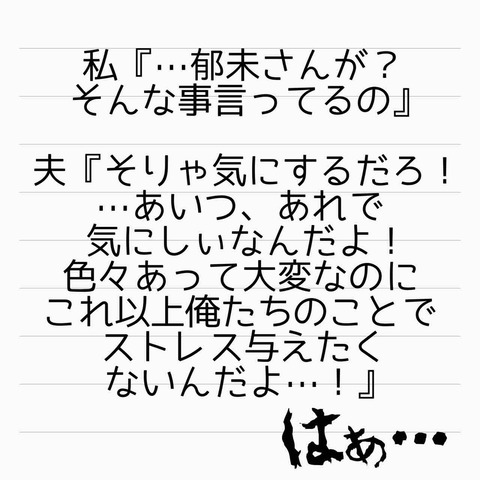 私『…郁未さんが？
そんな事言ってるの』
夫『そりゃ気にするだろ！
…あいつ、あれで
気にしぃなんだよ！
色々あって大変なのに
これ以上俺たちのことで
ストレス与えたく
ないんだよ…！』
はぁ…